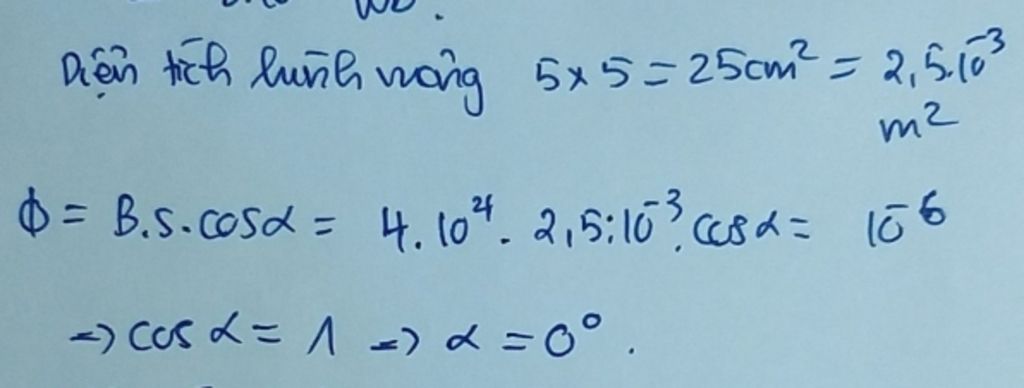 Diện tích hình vuông 5 x 5 = 25cm² = 2,5.10⁻³
m²
Φ = B.S.cosα = 4.10⁴. 2,5.10⁻³.cosα = 10⁻⁶
=> cosα = 1 => α = 0°.